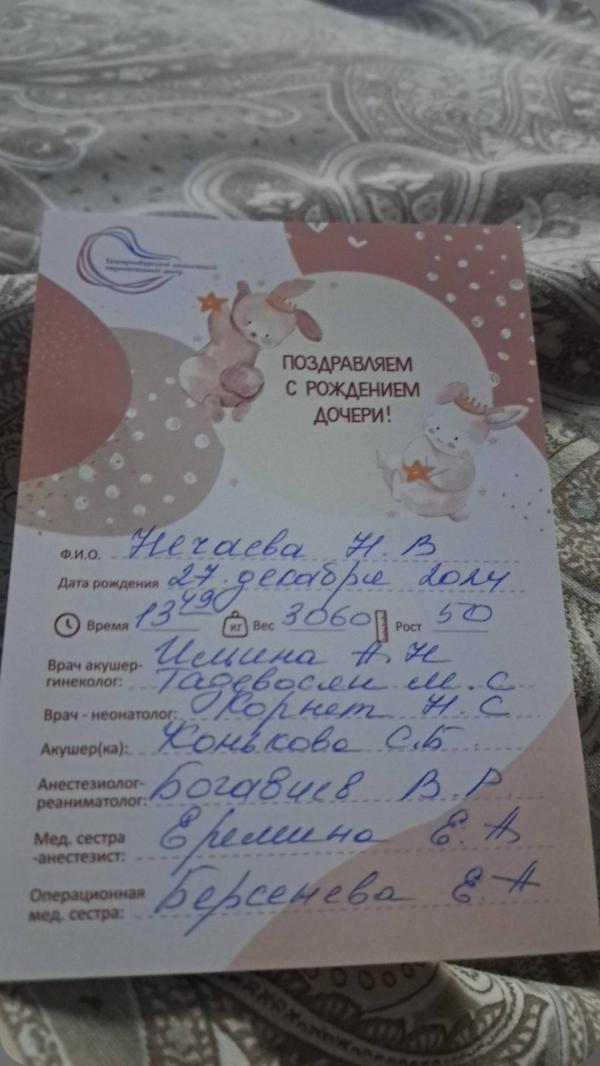 Екатеринбургский клинический
перинатальный центр
ПОЗДРАВЛЯЕМ
С РОЖДЕНИЕМ
ДОЧЕРИ!
Ф.И.О. Нечаева Н. В
Дата рождения 27 декабря 2024
Время 13 49 кг Вес 3060 Рост 50
Врач акушер-гинеколог: Ильина А. Н
Тадевосян М. С
Врач - неонатолог: Корнет Н. С
Акушер(ка): Конькова С.Б.
Анестезиолог-реаниматолог: Богавиев В. Р.
Мед. сестра -анестезист: Еремина Е. А
Операционная мед. сестра: Берсенева Е. А